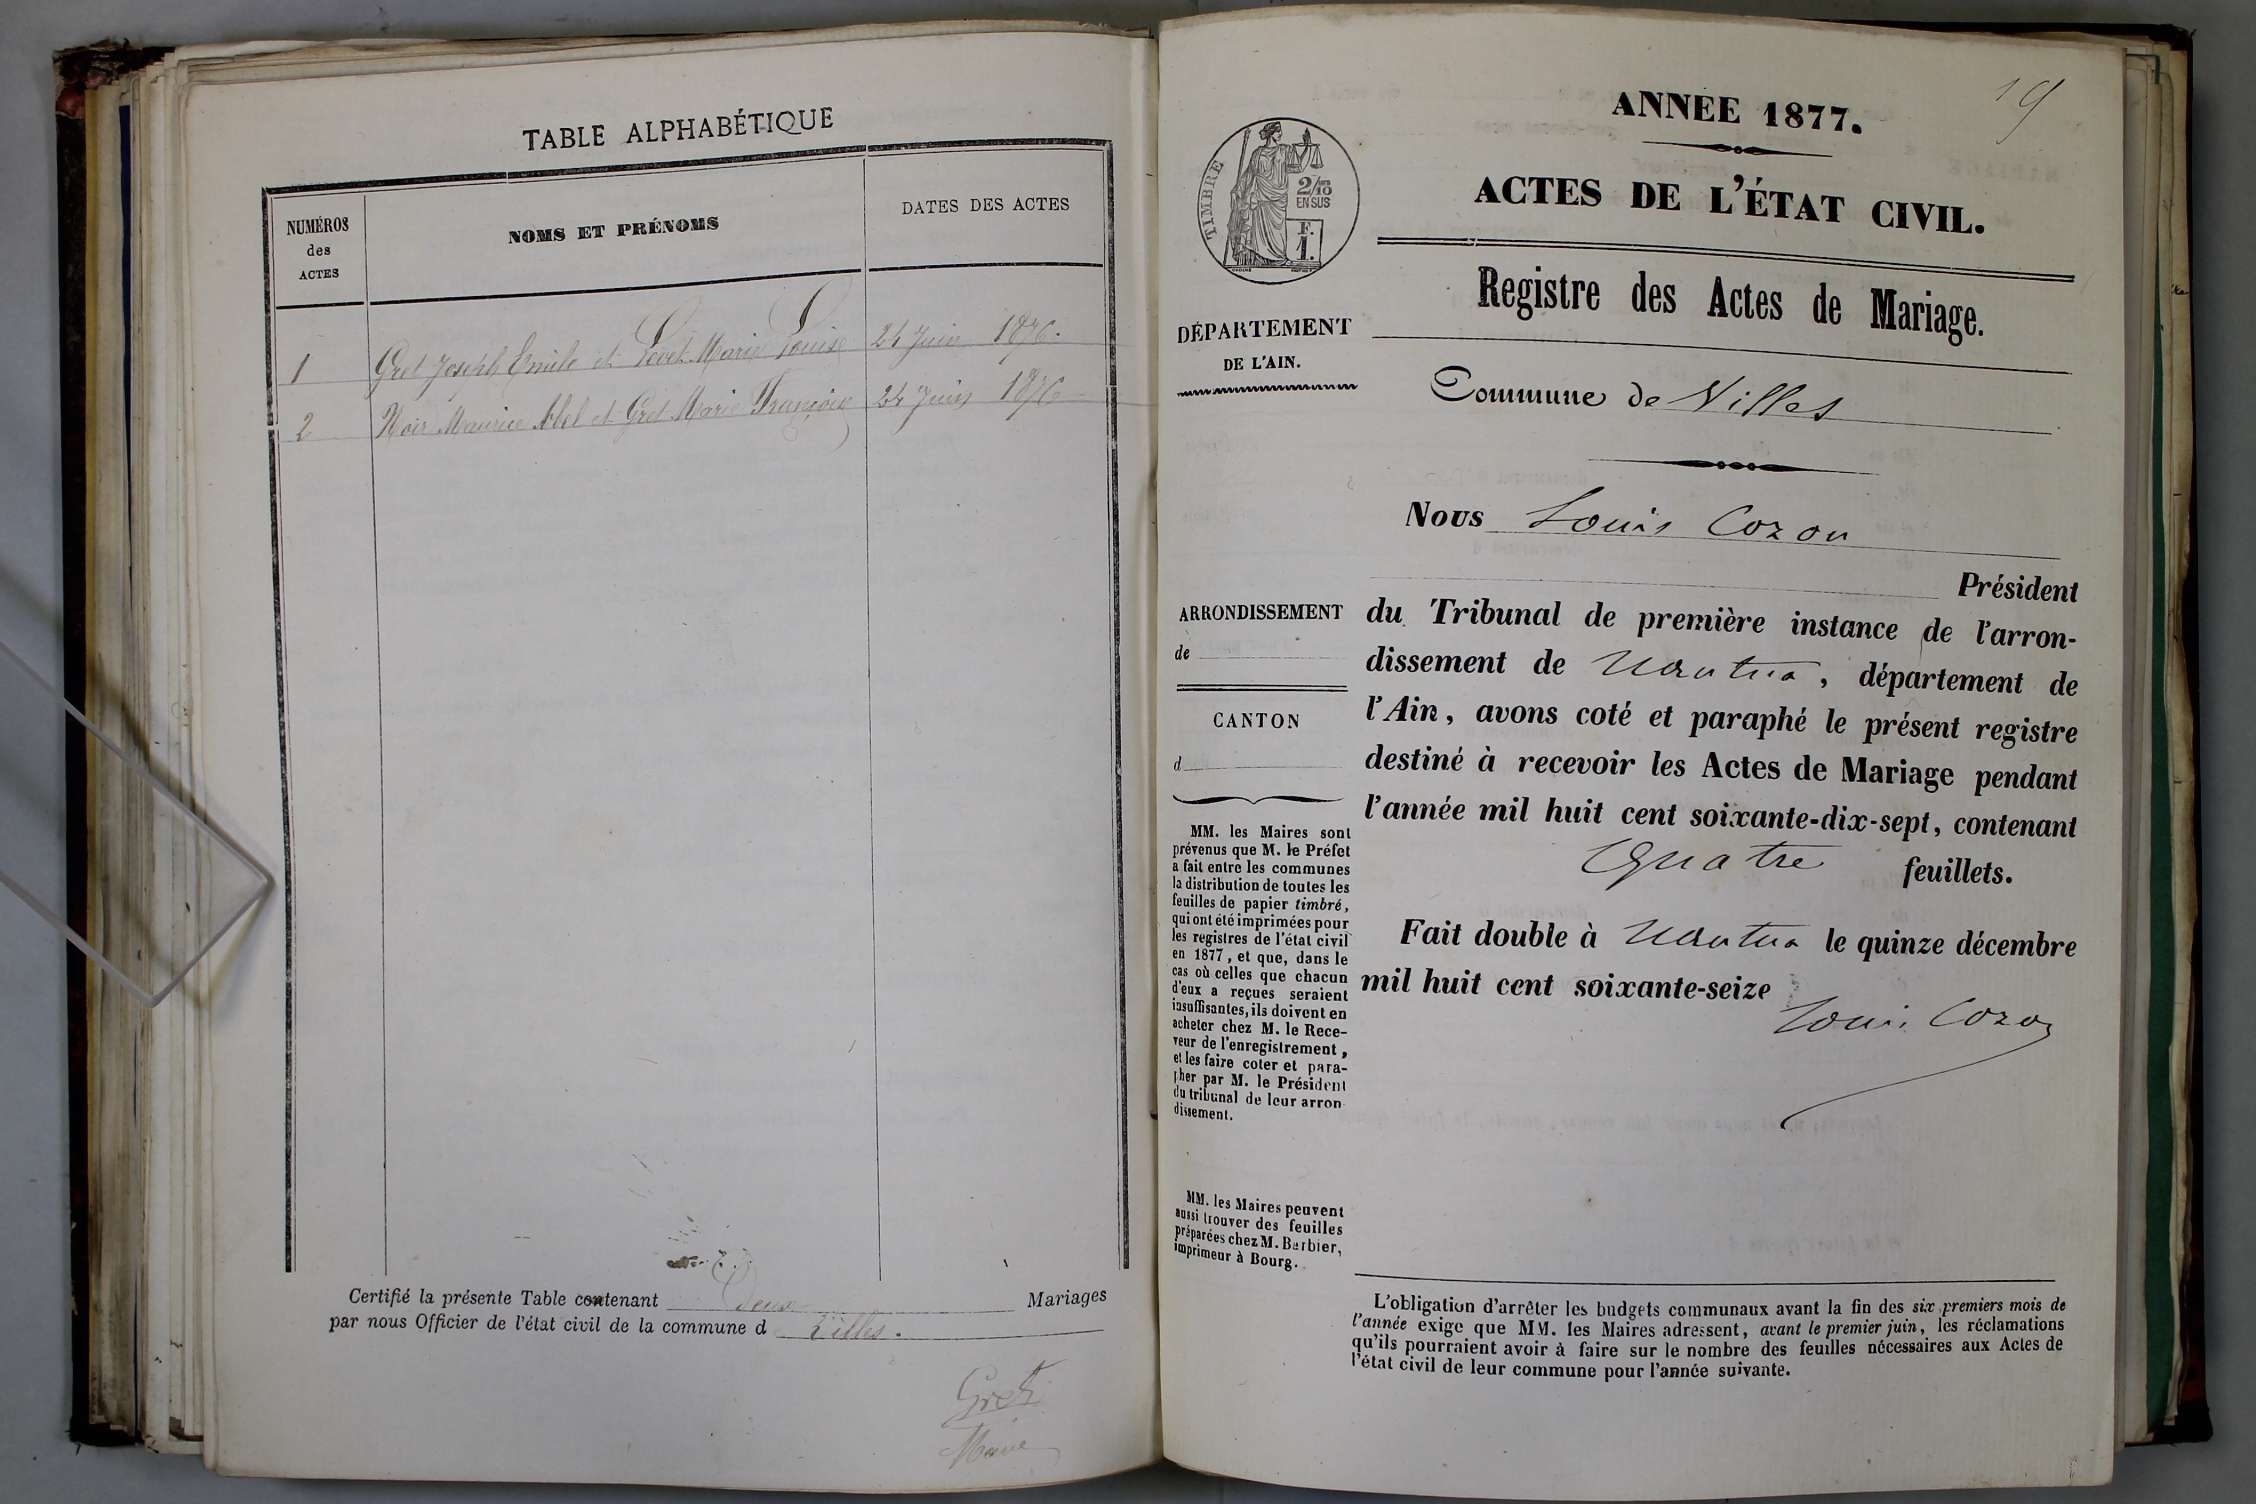 TABLE ALPHABÉTIQUE
NUMÉROS
des
ACTES
NOMS ET PRÉNOMS
DATES DES ACTES
1 Gret Joseph Emile et Levet Marie Louise 24 Juin 1876.
2 Noir Maurice Abel et Gret Marie Françoise 24 Juin 1876
Certifié la présente Table contenant Deux Mariages
par nous Officier de l'état civil de la commune d Villes.
Gret
Maire
19
ANNÉE 1877.
ACTES DE L'ÉTAT CIVIL.
TIMBRE
2/10
EN SUS
F.
1.
Registre des Actes de Mariage.
DÉPARTEMENT
DE L'AIN.
Commune de Villes
Nous Louis Cozon
Président
du Tribunal de première instance de l'arron-
dissement de Nantua, département de
l'Ain, avons coté et paraphé le présent registre
destiné à recevoir les Actes de Mariage pendant
l'année mil huit cent soixante-dix-sept, contenant
Quatre feuillets.
Fait double à Nantua le quinze décembre
mil huit cent soixante-seize
Louis Cozon
ARRONDISSEMENT
de
CANTON
d
MM. les Maires sont
prévenus que M. le Préfet
a fait entre les communes
la distribution de toutes les
feuilles de papier timbré,
qui ont été imprimées pour
les registres de l'état civil
en 1877, et que, dans le
cas où celles que chacun
d'eux a reçues seraient
insuffisantes, ils doivent en
acheter chez M. le Rece-
veur de l'enregistrement,
et les faire coter et para-
pher par M. le Président
du tribunal de leur arron-
dissement.
MM. les Maires peuvent
aussi trouver des feuilles
préparées chez M. Barbier,
imprimeur à Bourg.
L'obligation d'arrêter les budgets communaux avant la fin des six premiers mois de
l'année exige que MM. les Maires adressent, avant le premier juin, les réclamations
qu'ils pourraient avoir à faire sur le nombre des feuilles nécessaires aux Actes de
l'état civil de leur commune pour l'année suivante.